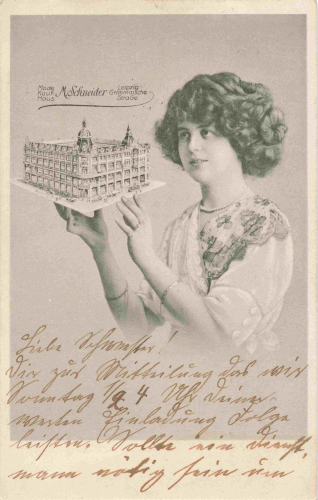 Mode Kauf Haus M. Schneider Leipzig Grimmaische Straße
Liebe Schwester!
Dir zur Mitteilung das wir
Sonntag 1/9 4 Uhr Deiner
werten Einladung Folge
leisten. Sollte ein Dienst,
mann nötig sein um